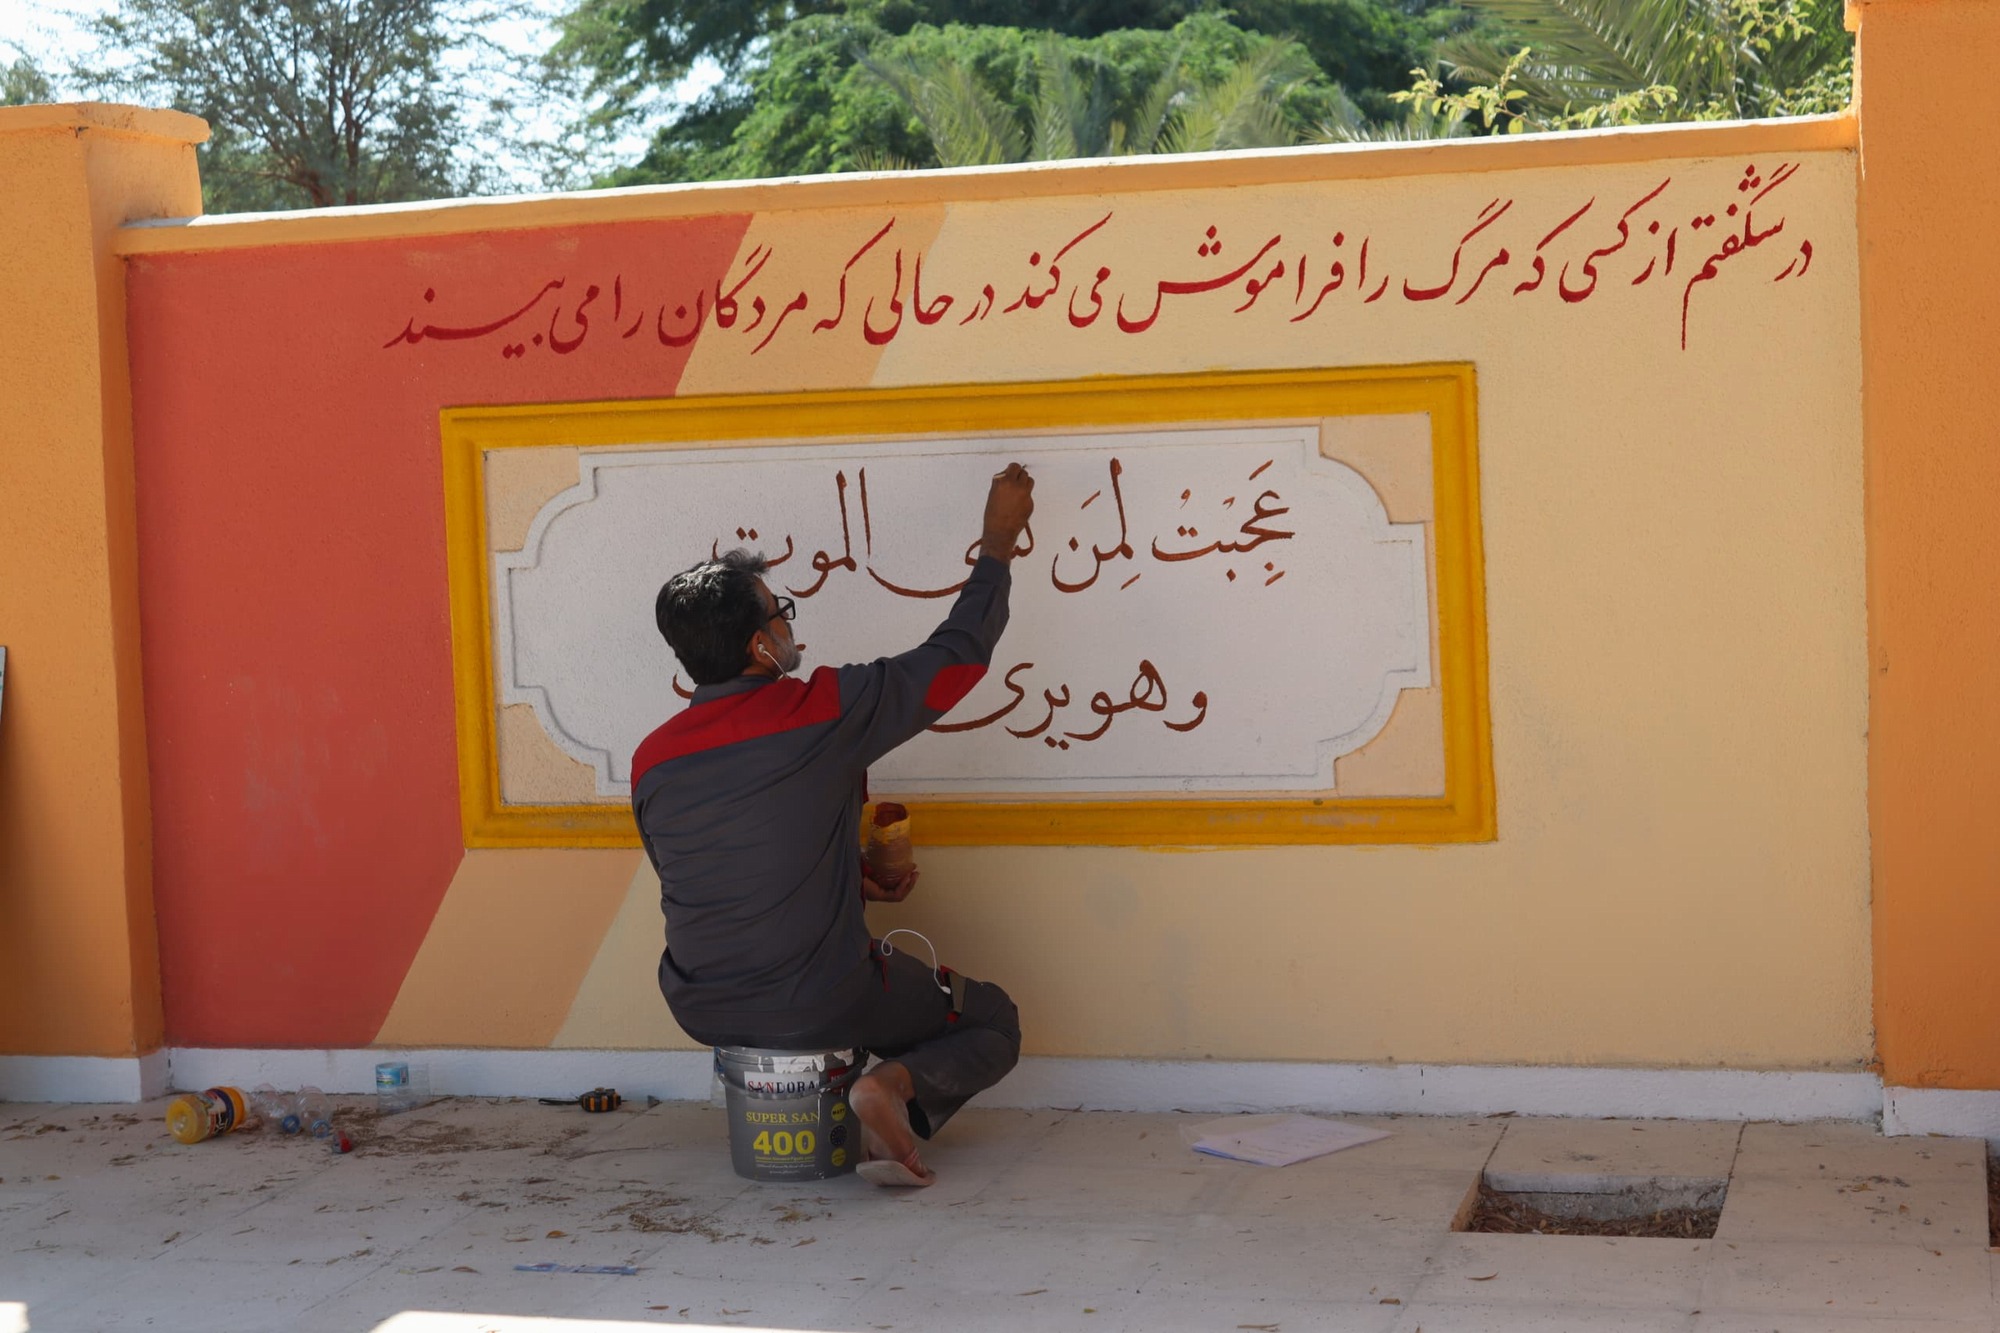 در شگفتم از کسی که مرگ را فراموش می کند در حالی که مردگان را می بیند
عَجِبْتُ لِمَن الموت
وهو یری
SANDORA
SUPER SAN
400